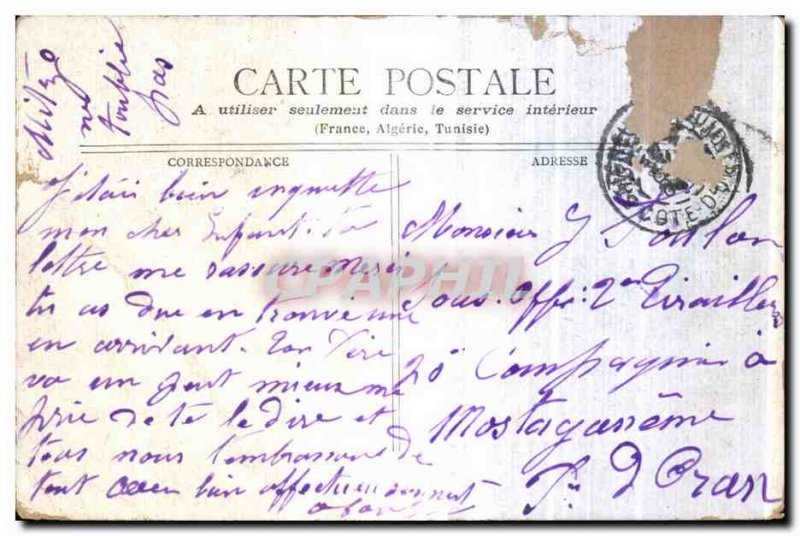 ne
t'oublie
pas
CARTE POSTALE
A utiliser seulement dans le service intérieur
(France, Algérie, Tunisie)
CORRESPONDANCE
ADRESSE
COTE-D'
J'étais bien inquiette
mon cher Enfant. ta
lettre me rassure Merci
tu as due en trouvé une
en arrivant. Ton Père
va un peut mieux me
prie de te le dire et
tous nous t'embrassons de
tout bien affectueusement
Monsieur J Toulon
Sous. Offi: 2e Tirailleurs
20e Compagnie à
Mostaganême
D Oran
CPAPHIL